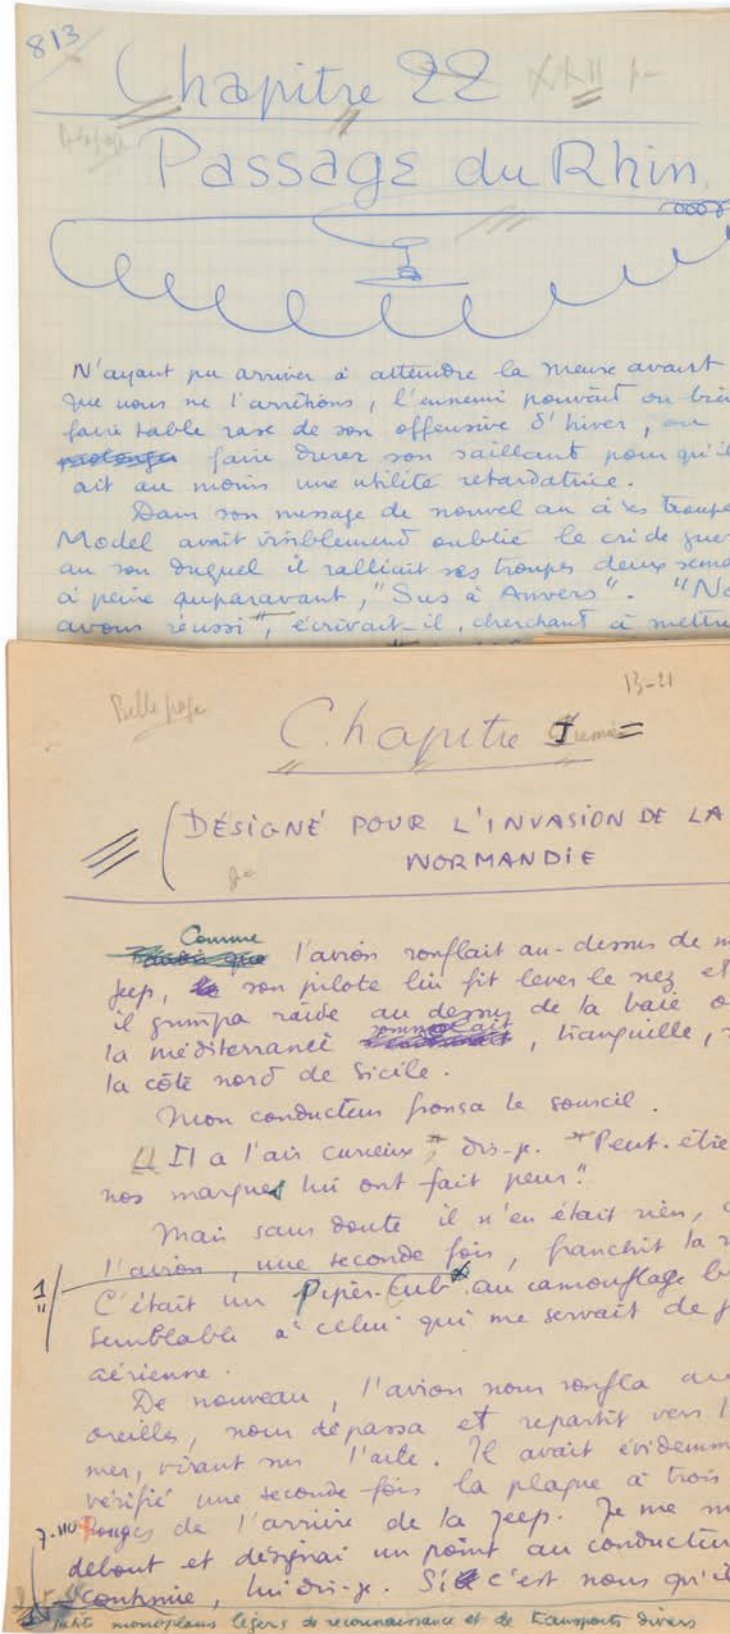 813
Chapitre 22 XXII
Passage du Rhin
N'ayant pu arriver à atteindre la Meuse avant
que nous ne l'arrêtions, l'ennemi pouvait ou bien
faire table rase de son offensive d'hiver, ou
prolonger faire durer son saillant pour qu'il
ait au moins une utilité retardatrice.
Dans son message de nouvel an à ses troupe
Model avait visiblement oublié le cri de guer
au son duquel il ralliait ses troupes deux sema
à peine auparavant, "Sus à Anvers". "No
avons réussi", écrivait-il, cherchant à mettre
13-21
Belle page
Chapitre I
DÉSIGNÉ POUR L'INVASION DE LA
NORMANDIE
Comme
l'avion ronflait au-dessus de m
jeep, son pilote lui fit lever le nez et
il grimpa raide au dessus de la baie o
sommolait
la méditerranée, tranquille,
la côte nord de Sicile.
Mon conducteur fronça le sourcil.
"Il a l'air curieux", dis-je. "Peut-être
nos marques lui ont fait peur."
Mais sans doute il n'en était rien, c
l'avion, une seconde fois, franchit la r
1
C'était un Piper-Cub* au camouflage b
semblable à celui qui me servait de j
aérienne.
De nouveau, l'avion nous ronfla au
oreilles, nous dépassa et repartit vers l
mer, virant sur l'aile. Il avait évidemm
vérifié une seconde fois la plaque à trois
Rouges de l'arrière de la jeep. Je me m
debout et désignai un point au conducteur
continue, lui dis-je. Si c'est nous qu'il
Petits monoplans légers de reconnaissance et de transports divers